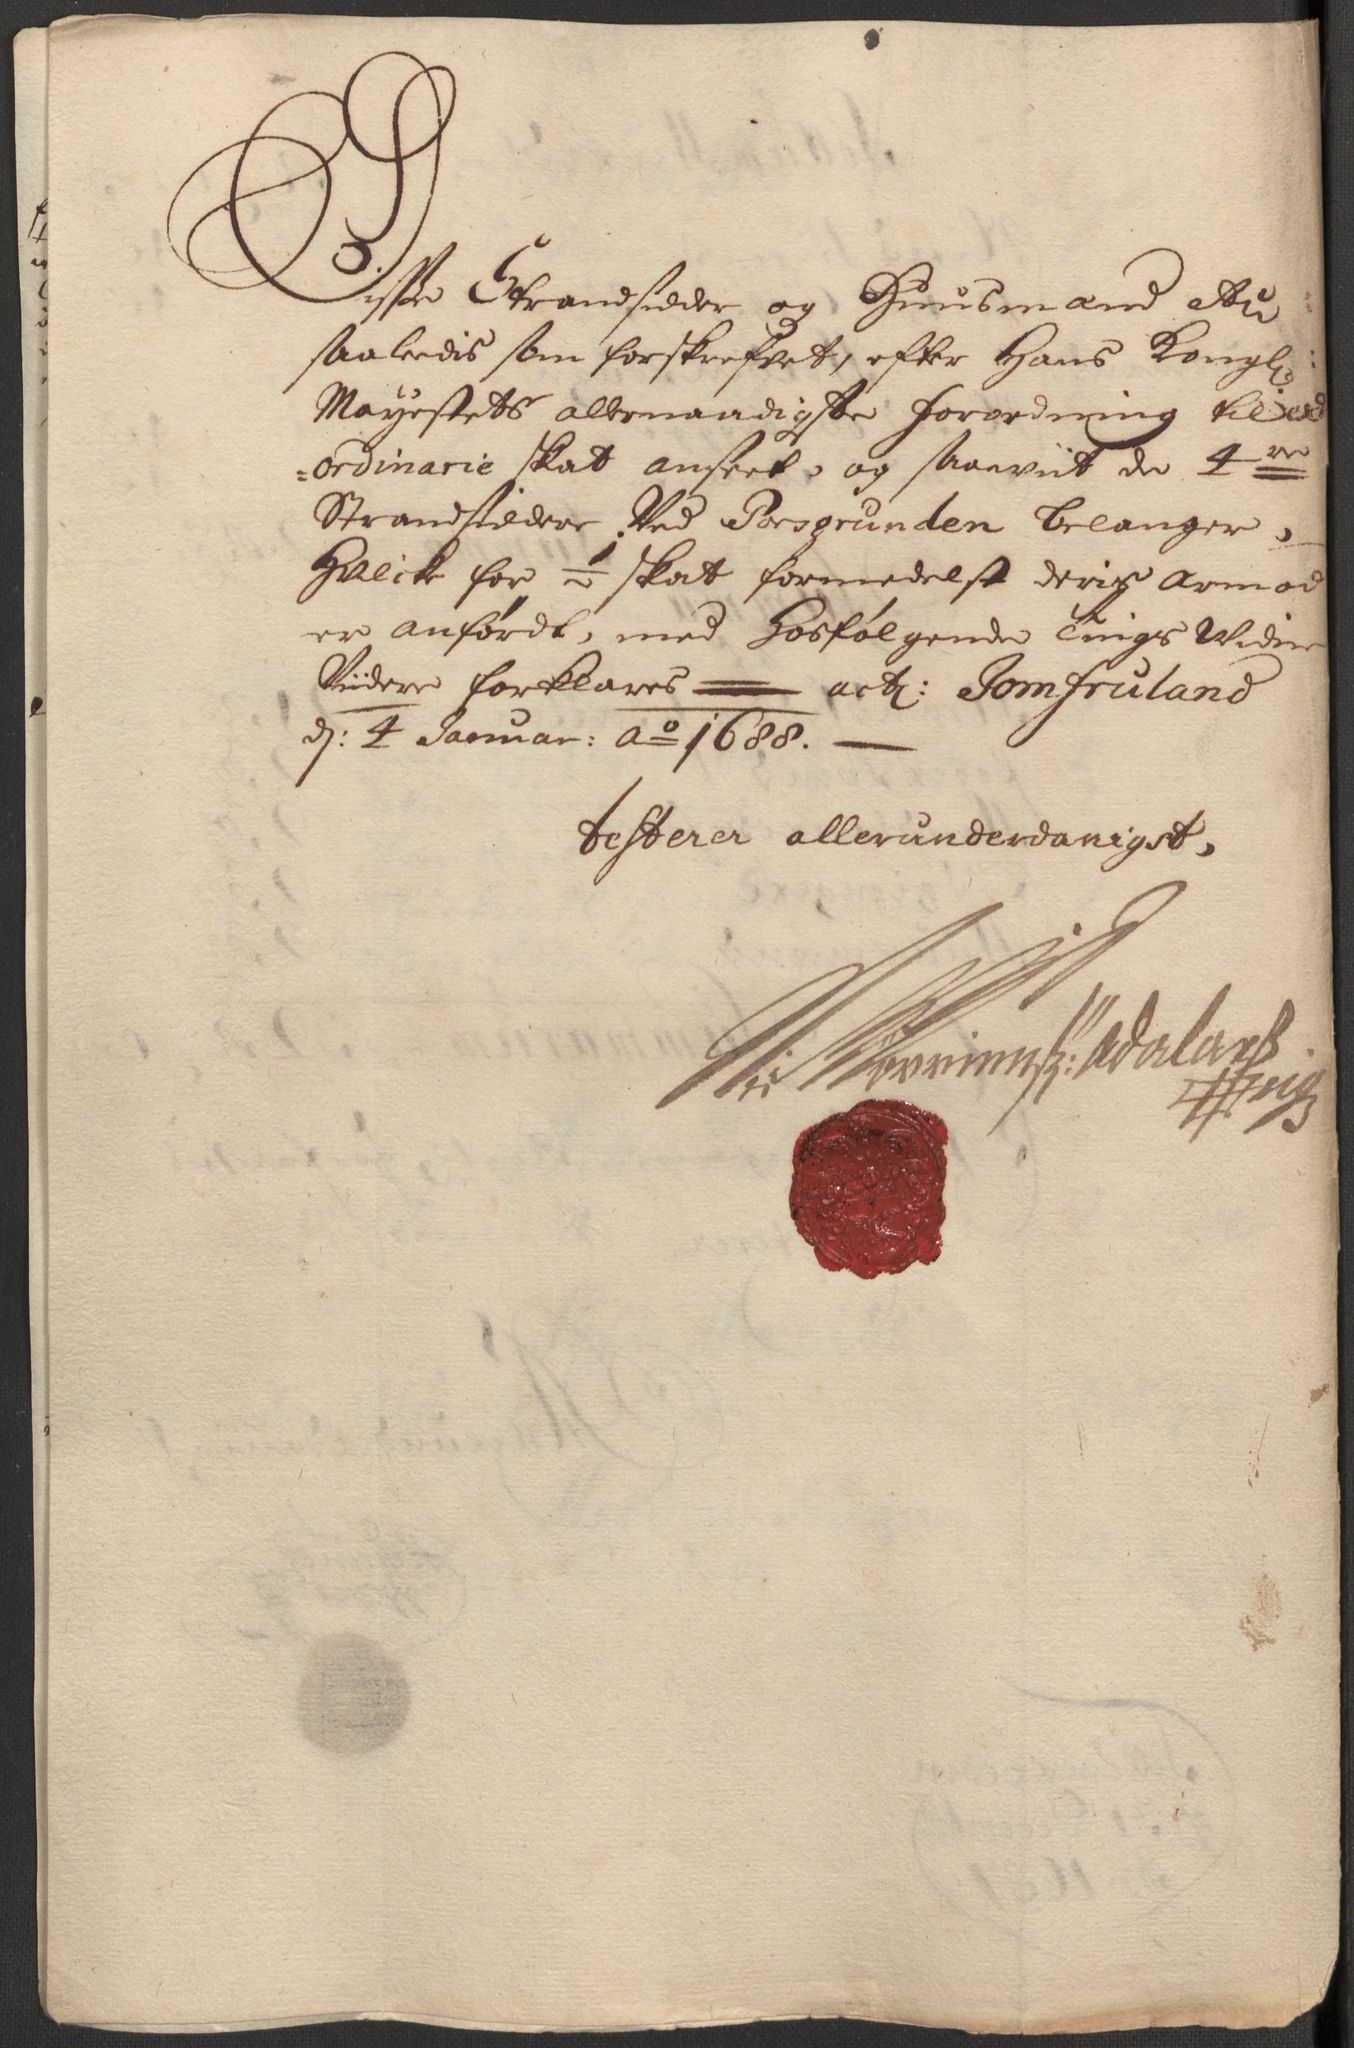 Disse Strandsidder og Huusmænd Ere
saaledis som forskrefvet, efter Hans Kongl:
Mayestets allernaadigste forordning til Ext
=ordinarie skat anseet, og saaviit de 4re
Strandsiddere Ved Porsgrunden belanger,
Hvilcke for 1/2 skat formedelst deris armod
er anførdt, med hosfølgende Tings Widne
Viidere forklares actj: Jomfruland
dj: 4 Januar: Ao 1688.
testerer allerunderdanigst,